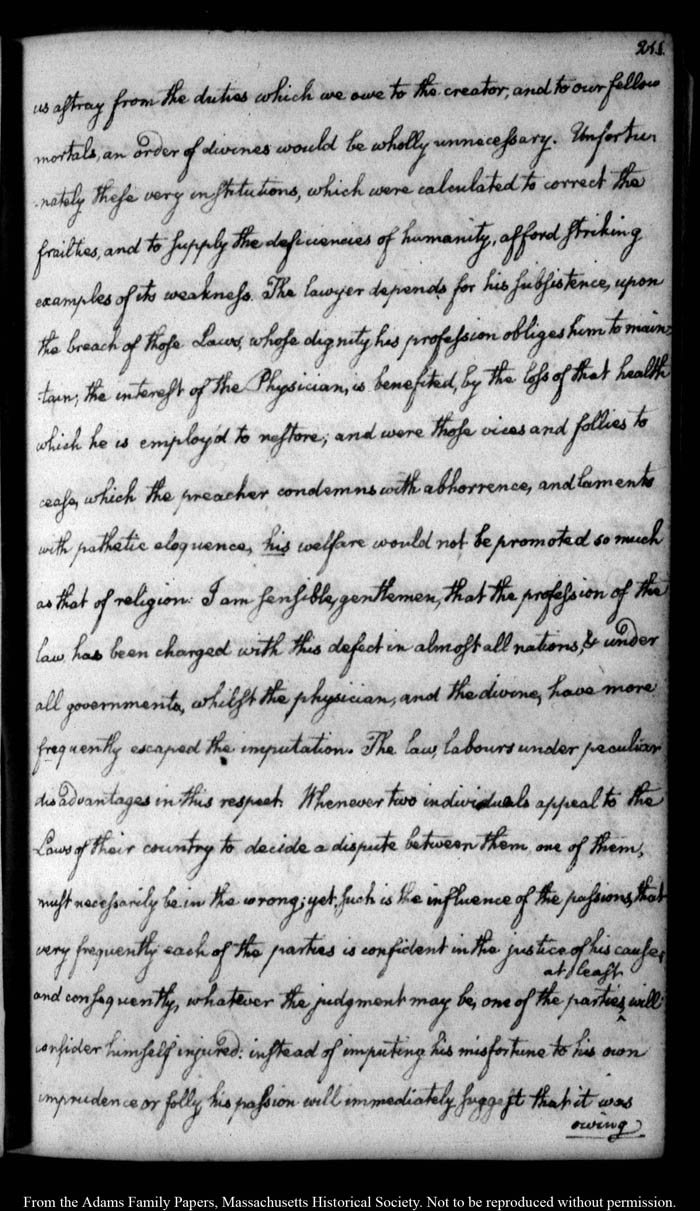 211.
us astray from the duties which we owe to the creator, and to our fellow
mortals, an order of divines would be wholly unnecessary. Unfortu-
-nately these very institutions, which were calculated to correct the
frailties, and to supply the deficiencies of humanity, afford striking
examples of its weakness. The lawyer depends for his subsistence, upon
the breach of those Laws, whose dignity his profession obliges him to main-
-tain; the interest of the Physician, is benefited, by the loss of that health
which he is employ'd to restore; and were those vices and follies to
cease, which the preacher condemns with abhorrence, and laments
with pathetic eloquence, his welfare would not be promoted so much
as that of religion. I am sensible, gentlemen, that the profession of the
law has been charged with this defect in almost all nations, & under
all governments, whilst the physician, and the divine, have more
frequently escaped the imputation. The law, labours under peculiar
disadvantages in this respect. Whenever two individuals appeal to the
Laws of their country to decide a dispute between them, one of them,
must necessarily be in the wrong; yet, such is the influence of the passions, that
very frequently each of the parties is confident in the justice of his cause,
at least
and consequently, whatever the judgment may be, one of the parties, ‸ will
consider himself injured: instead of imputing his misfortune to his own
imprudence or folly his passion will immediately suggest that it was
owing
From the Adams Family Papers, Massachusetts Historical Society. Not to be reproduced without permission.